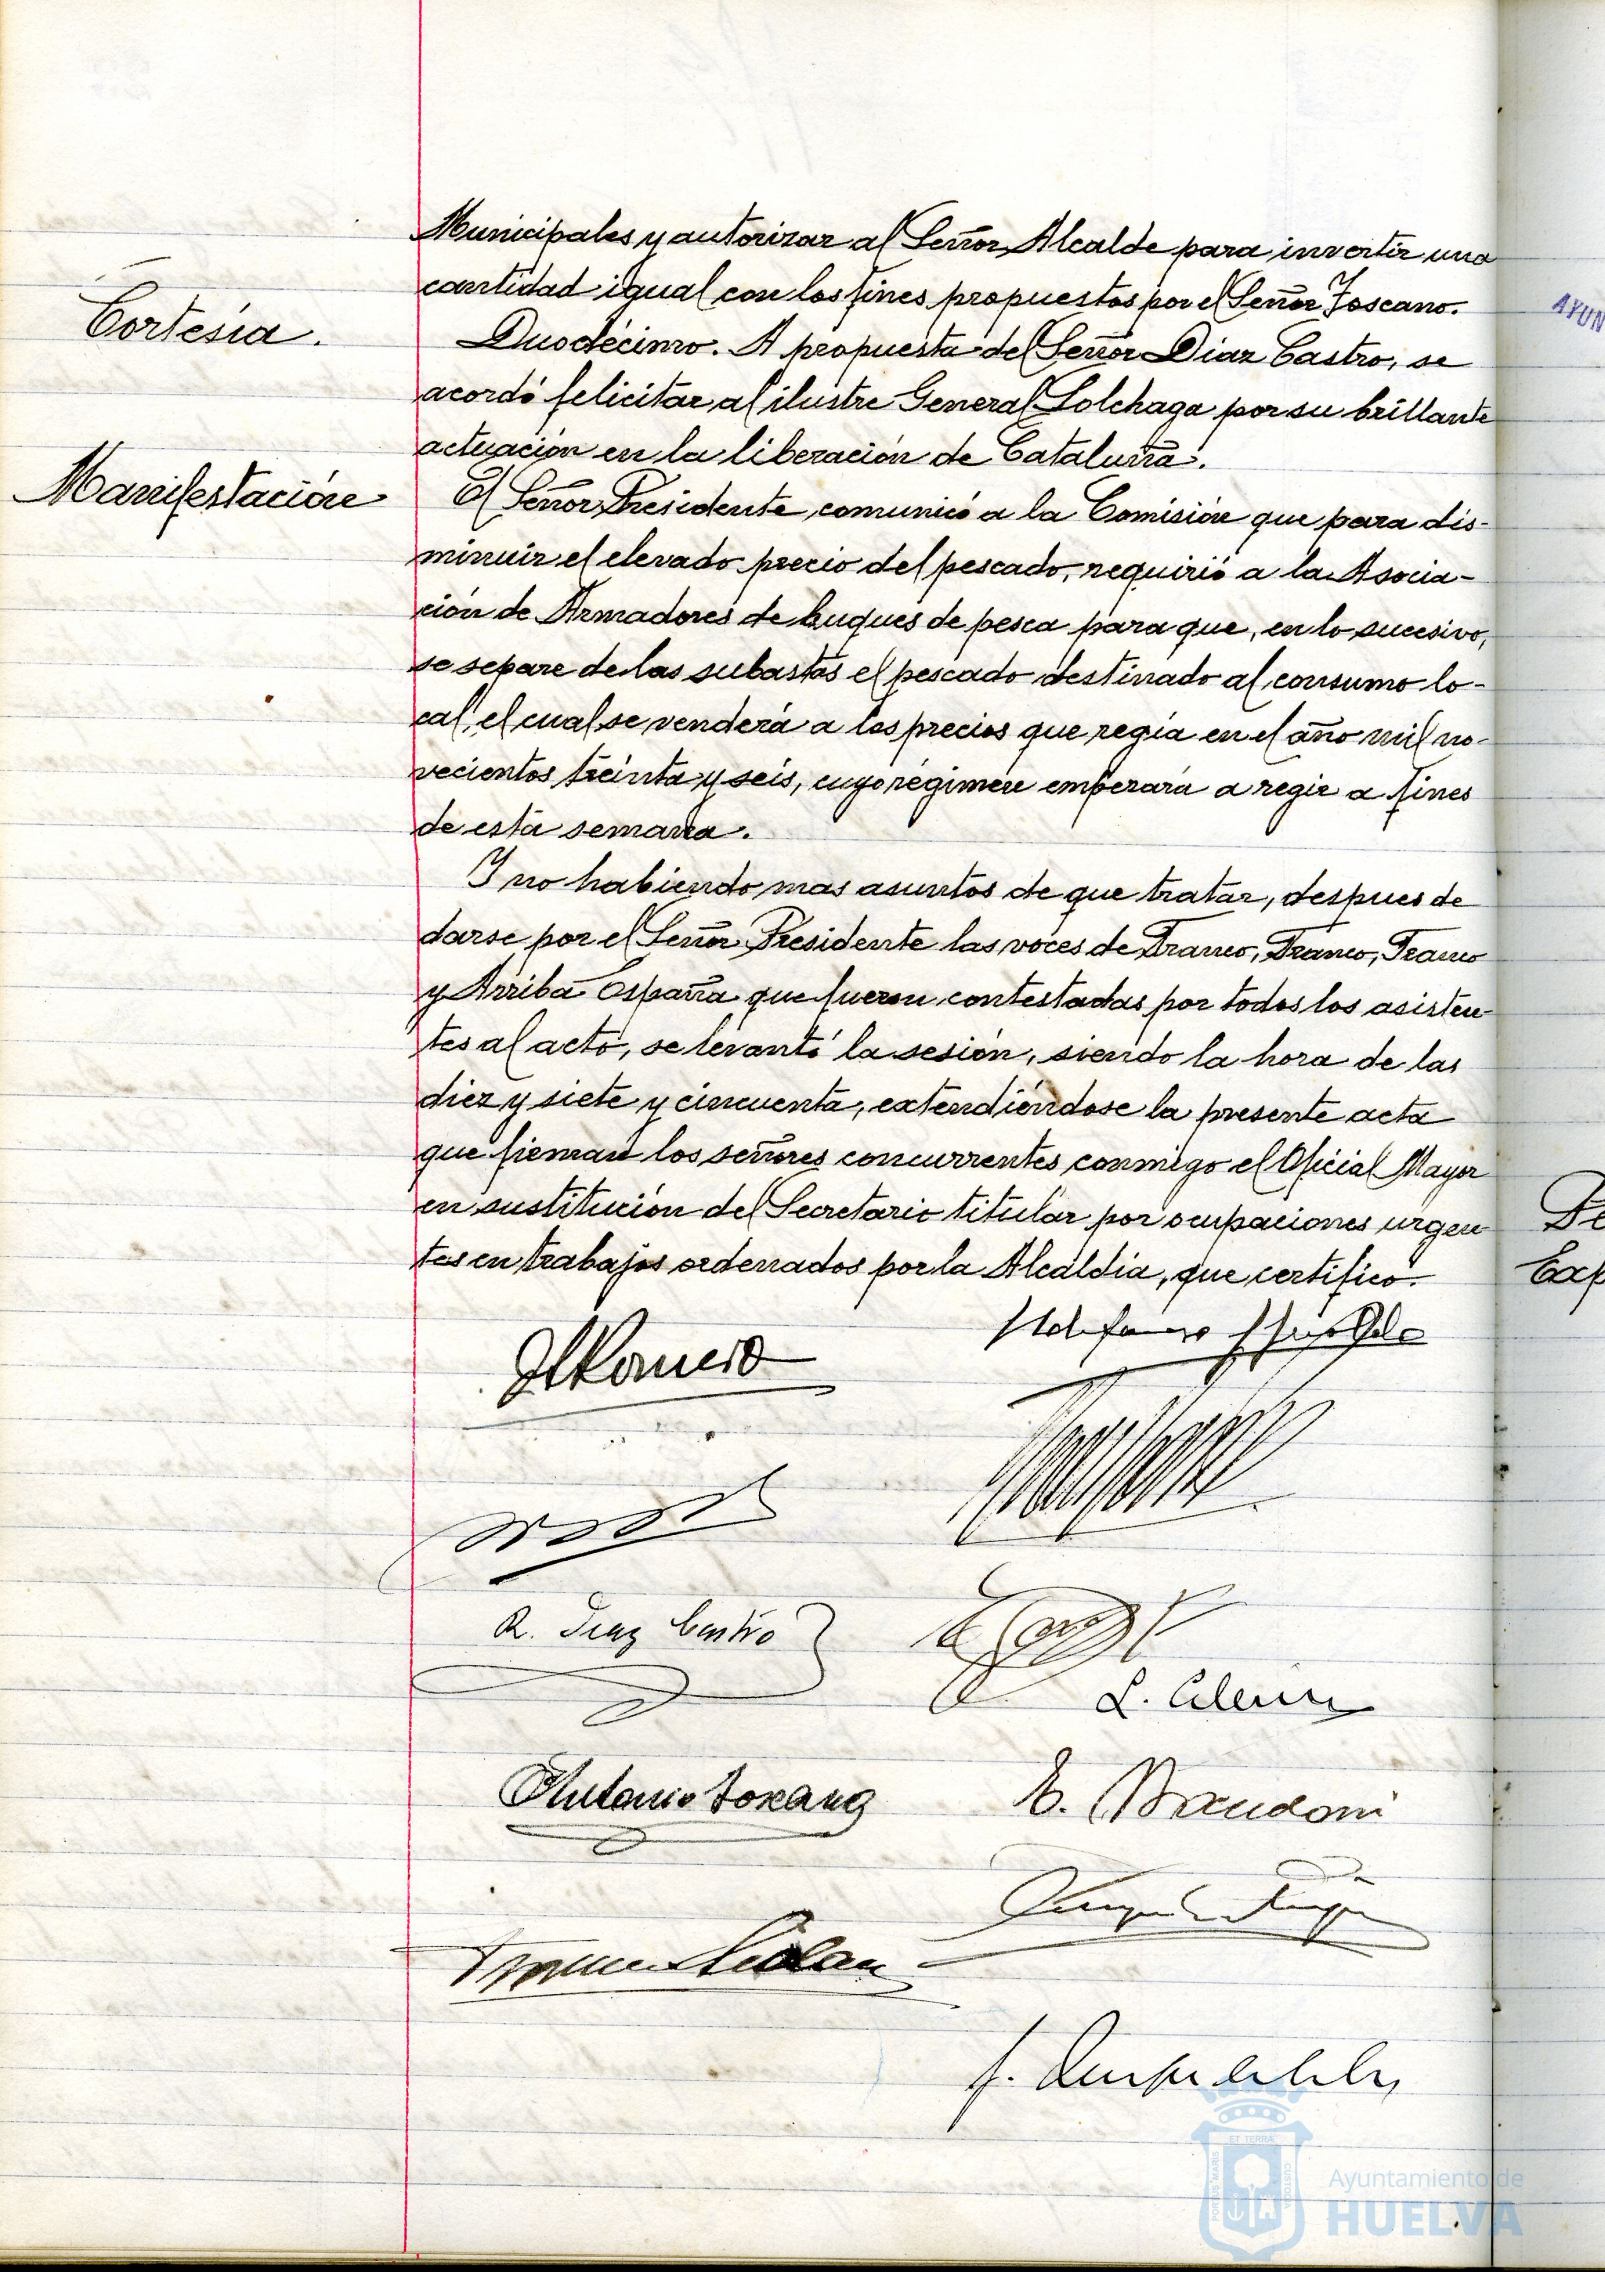 Municipales y autorizar al Señor Alcalde para invertir una
cantidad igual con los fines propuestos por el Señor Toscano.
Cortesía.
Duodécimo. A propuesta del Señor Diaz Castro, se
acordó felicitar al ilustre General Solchaga por su brillante
actuación en la liberación de Cataluña.
Manifestación
El Señor Presidente, comunicó a la Comisión que para dis-
minuir el elevado precio del pescado, requirió a la Asocia-
ción de Armadores de buques de pesca para que, en lo sucesivo,
se separe de las subastas el pescado destinado al consumo lo-
cal, el cual se venderá a los precios que regía en el año mil no-
vecientos treinta y seis, cuyo régimen empezará a regir a fines
de esta semana.
Y no habiendo mas asuntos de que tratar, despues de
darse por el Señor Presidente las voces de Franco, Franco, Franco
y Arriba España que fueron contestadas por todos los asisten-
tes al acto, se levantó la sesión, siendo la hora de las
diez y siete y cincuenta, extendiéndose la presente acta
que firman los señores concurrentes conmigo el Oficial Mayor
en sustitución del Secretario titular por ocupaciones urgen-
tes en trabajos ordenados por la Alcaldía, que certifico.
Romero
R. Diaz Castro
Antonio Toscano
AYUN
De
Exp
ET TERRA
PORTUS MARIS
CUSTODIA
Ayuntamiento de
HUELVA